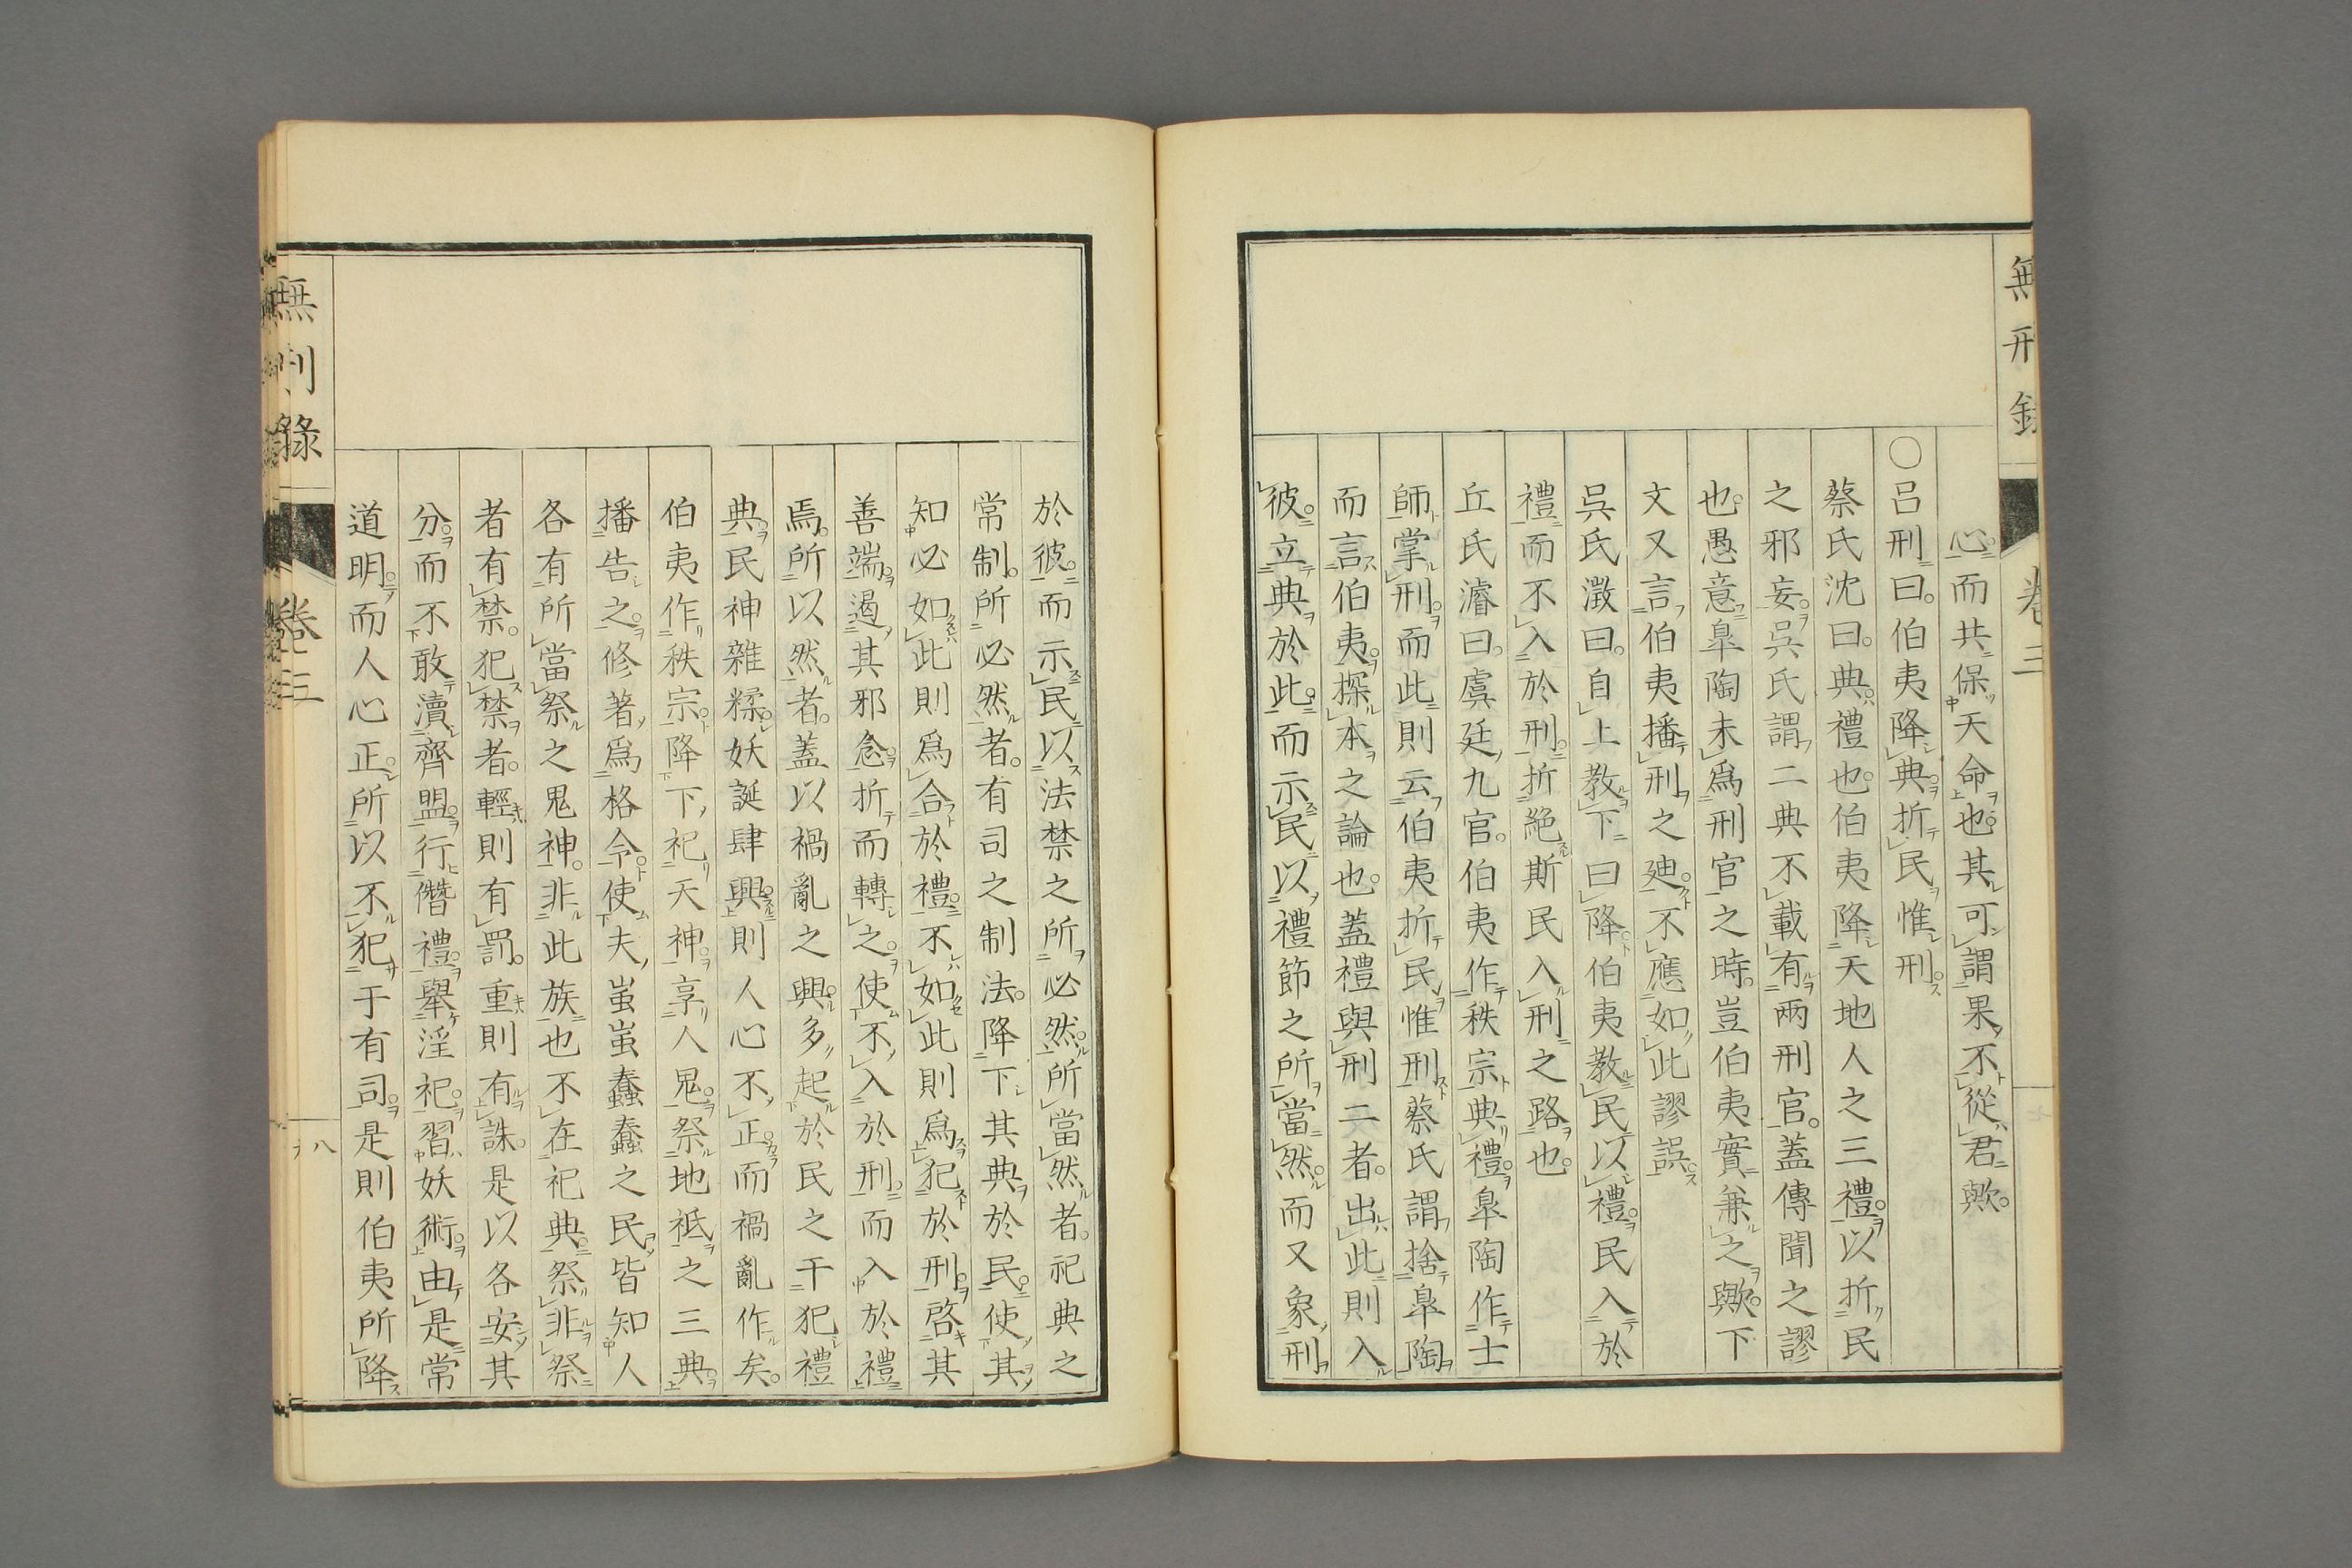 無刑錄
卷三
心而共保天命也其可謂果不從君歟
○呂刑曰伯夷降典折民惟刑
蔡氏沈曰典禮也伯夷降天地人之三禮以折民
之邪妄吳氏謂二典不載有兩刑官蓋傳聞之謬
也愚意臯陶未爲刑官之時豈伯夷實兼之歟下
文又言伯夷播刑之廸不應如此謬誤
吳氏澂曰自上教下曰降伯夷教民以禮民入於
禮而不入於刑折絶斯民入刑之路也
丘氏濬曰虞廷九官伯夷作秩宗典禮臯陶作士
師掌刑而此則云伯夷折民惟刑蔡氏謂捨臯陶
而言伯夷探本之論也蓋禮與刑二者出此則入
彼立典於此而示民以禮節之所當然而又象刑
於彼而示民以法禁之所必然所當然者祀典之
常制所必然者有司之制法降下其典於民使其
知必如此則爲合於禮不如此則爲犯於刑啓其
善端遏其邪念折而轉之使不入於刑而入於禮
焉所以然者蓋以禍亂之興多起於民之干犯禮
典民神雜糅妖誕肆興則人心不正而禍亂作矣
伯夷作秩宗降下祀天神享人鬼祭地祇之三典
播告之修著爲格令使夫蚩蚩蠢蠢之民皆知人
各有所當祭之鬼神非此族也不在祀典祭非祭
者有禁犯禁者輕則有罰重則有誅是以各安其
分而不敢瀆齊盟行僭禮舉淫祀習妖術由是常
道明而人心正所以不犯于有司是則伯夷所降
無刑錄
卷三
八